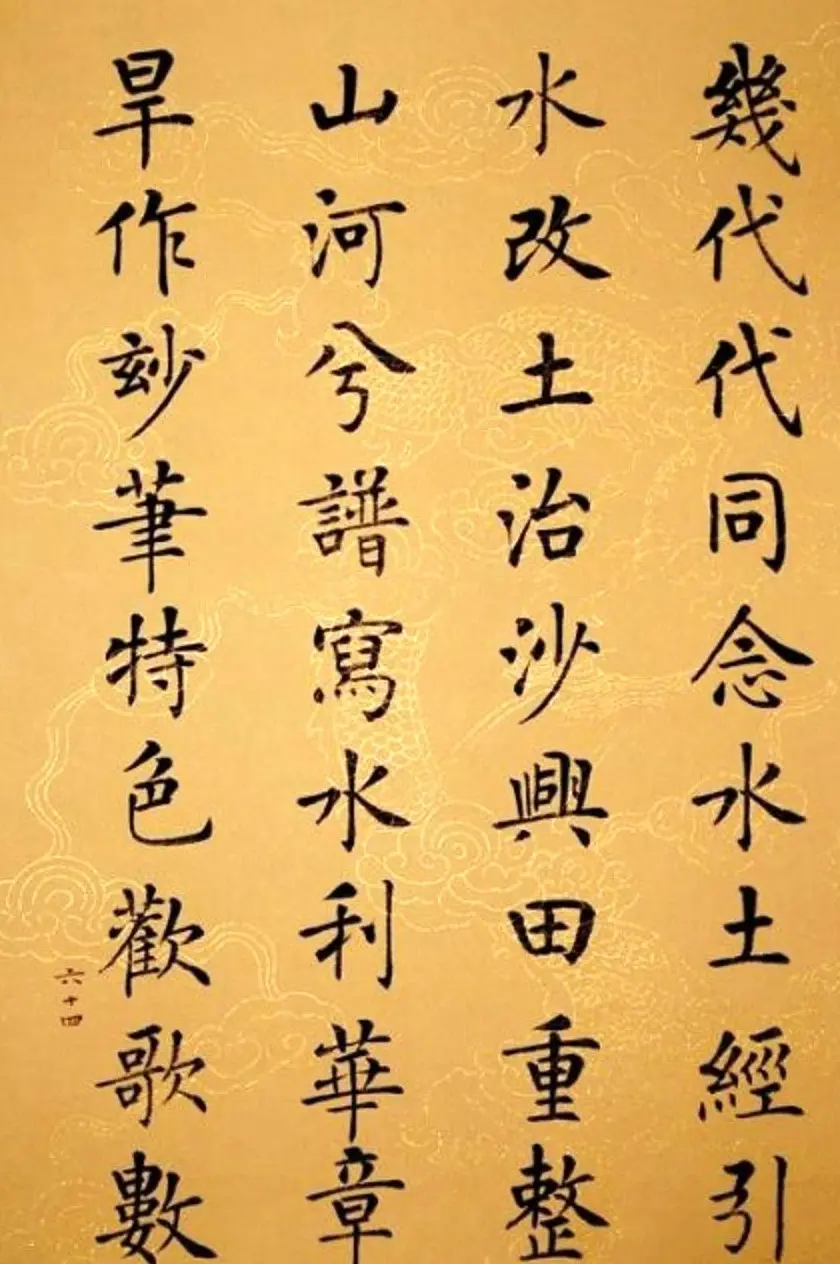 幾代代同念水土經引
水改土治沙興田重整
山河兮譜寫水利華章
旱作玅筆特色歡歌數
六十四